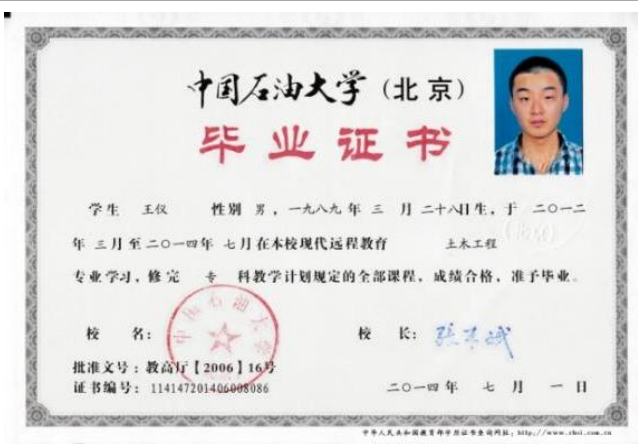 中国石油大学(北京)
毕业证书
学生 王仪 性别 男，一九八九年 三 月 二十八日生，于 二〇一二
年 三月至二〇一四年 七月在本校现代远程教育 土木工程
专业学习，修完 专 科教学计划规定的全部课程，成绩合格，准予毕业。
校 名： 校 长：
中国石油大学
批准文号：教高厅【2006】16号
证书编号：114147201406008086 二〇一四年 七 月 一 日
中华人民共和国教育部学历证书查询网址：http://www.chsi.com.cn